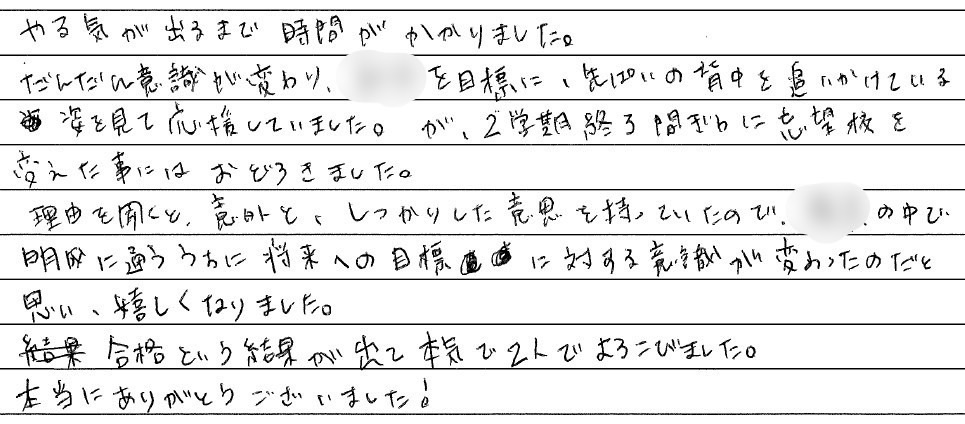 やる気が出るまで時間がかかりました。
だんだん意識が変わり、を目標に、先ぱいの背中を追いかけている
姿を見て応援していました。が、2学期終了間ぎわに志望校を
変えた事にはおどろきました。
理由を聞くと、意外と、しっかりした意思を持っていたので、の中で
明成に通ううちに将来への目標に対する意識が変わったのだと
思い、嬉しくなりました。
結果 合格という結果が出て本気で2人でよろこびました。
本当にありがとうございました!